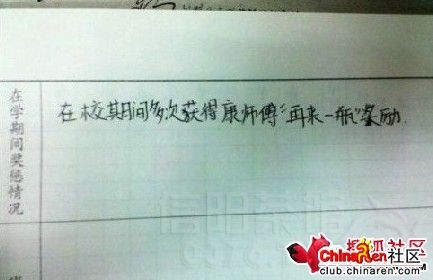 在学期间奖惩情况
在校其间多次获得康师傅“再来一瓶”奖励.
搜狐社区
ChinaRen社区
club.chinaren.com